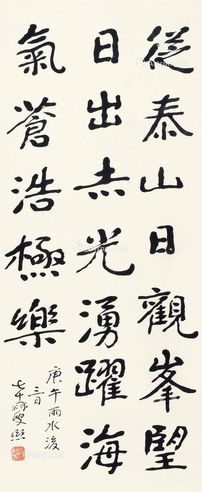 從泰山日觀峯望
日出赤光湧躍海
氣蒼浩極樂
庚午雨水後
三日